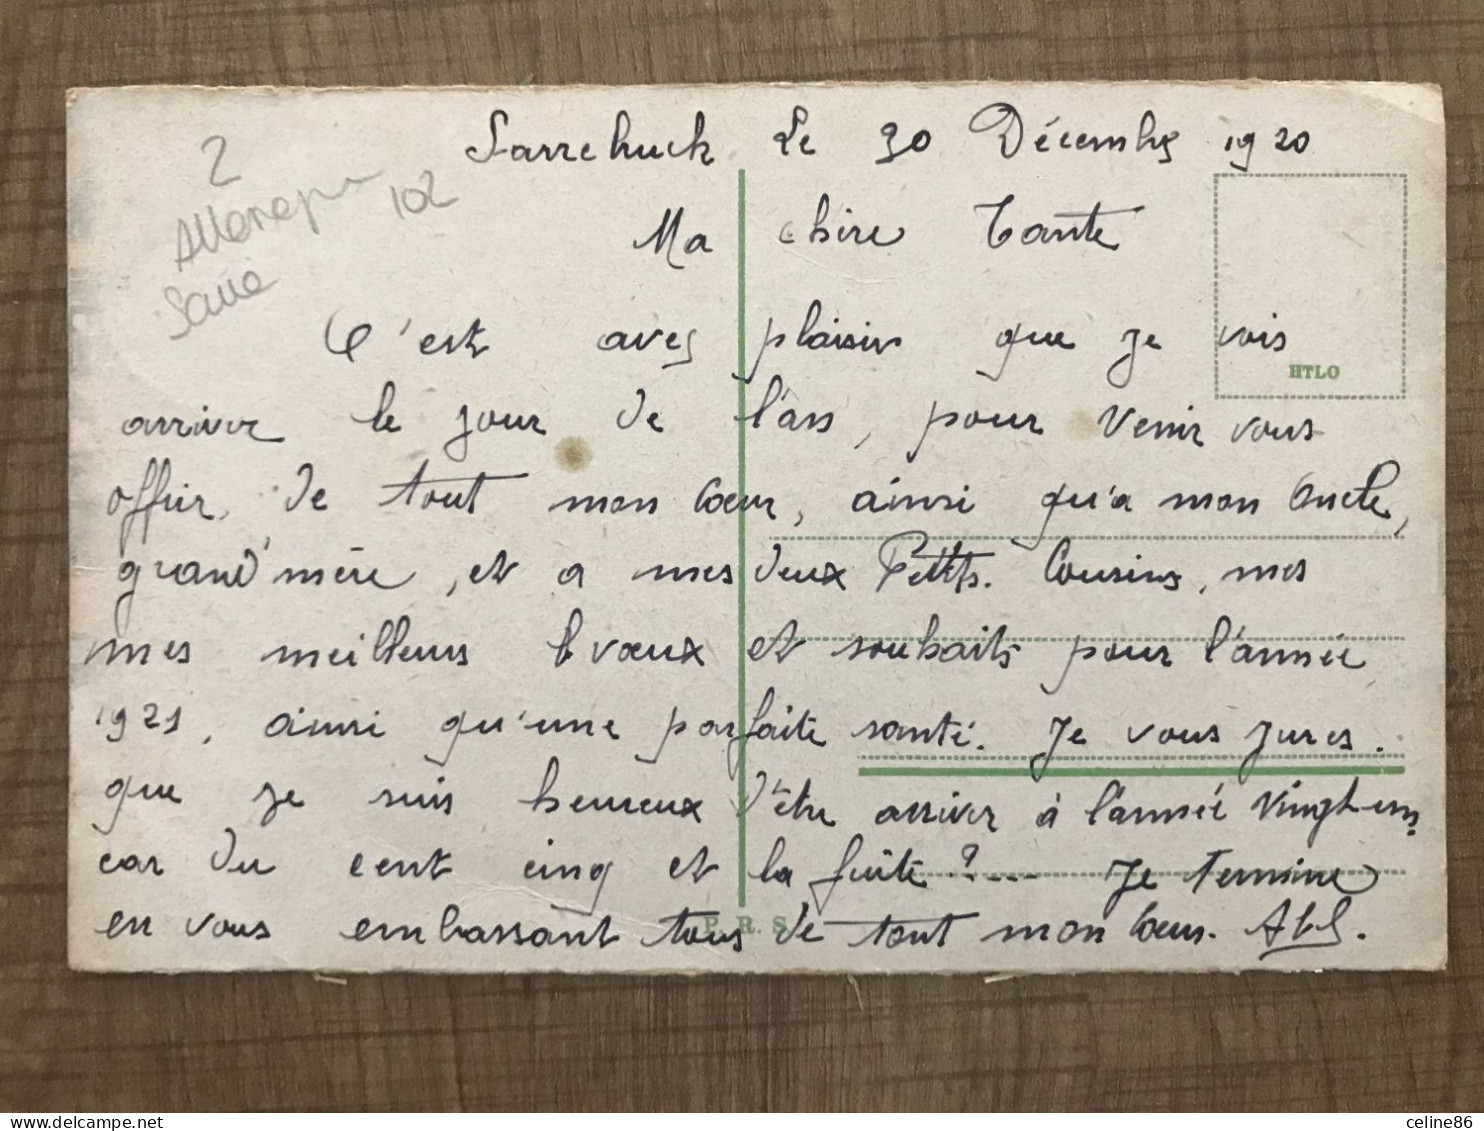 Sarrebuck Le 30 Décembre 1920
2
Allemagne
102
Sarre
Ma chère Tante
C'est avec plaisir que je vois
HTLO
arriver le jour de l'an, pour venir vous
offrir, de tout mon Cœur, ainsi qu'a mon Oncle,
grand'mère, et a mes deux Petits. Cousins, mes
mes meilleurs vœux et souhaits pour l'année
1921, ainsi qu'une parfaite santé. Je vous jures.
que je suis heureux d'être arriver à l'année vingt-un,
car du cent cinq et la fuite ?... Je termine
en vous embrassant tous de tout mon Cœur. Abl.
P. R. S.
celine86